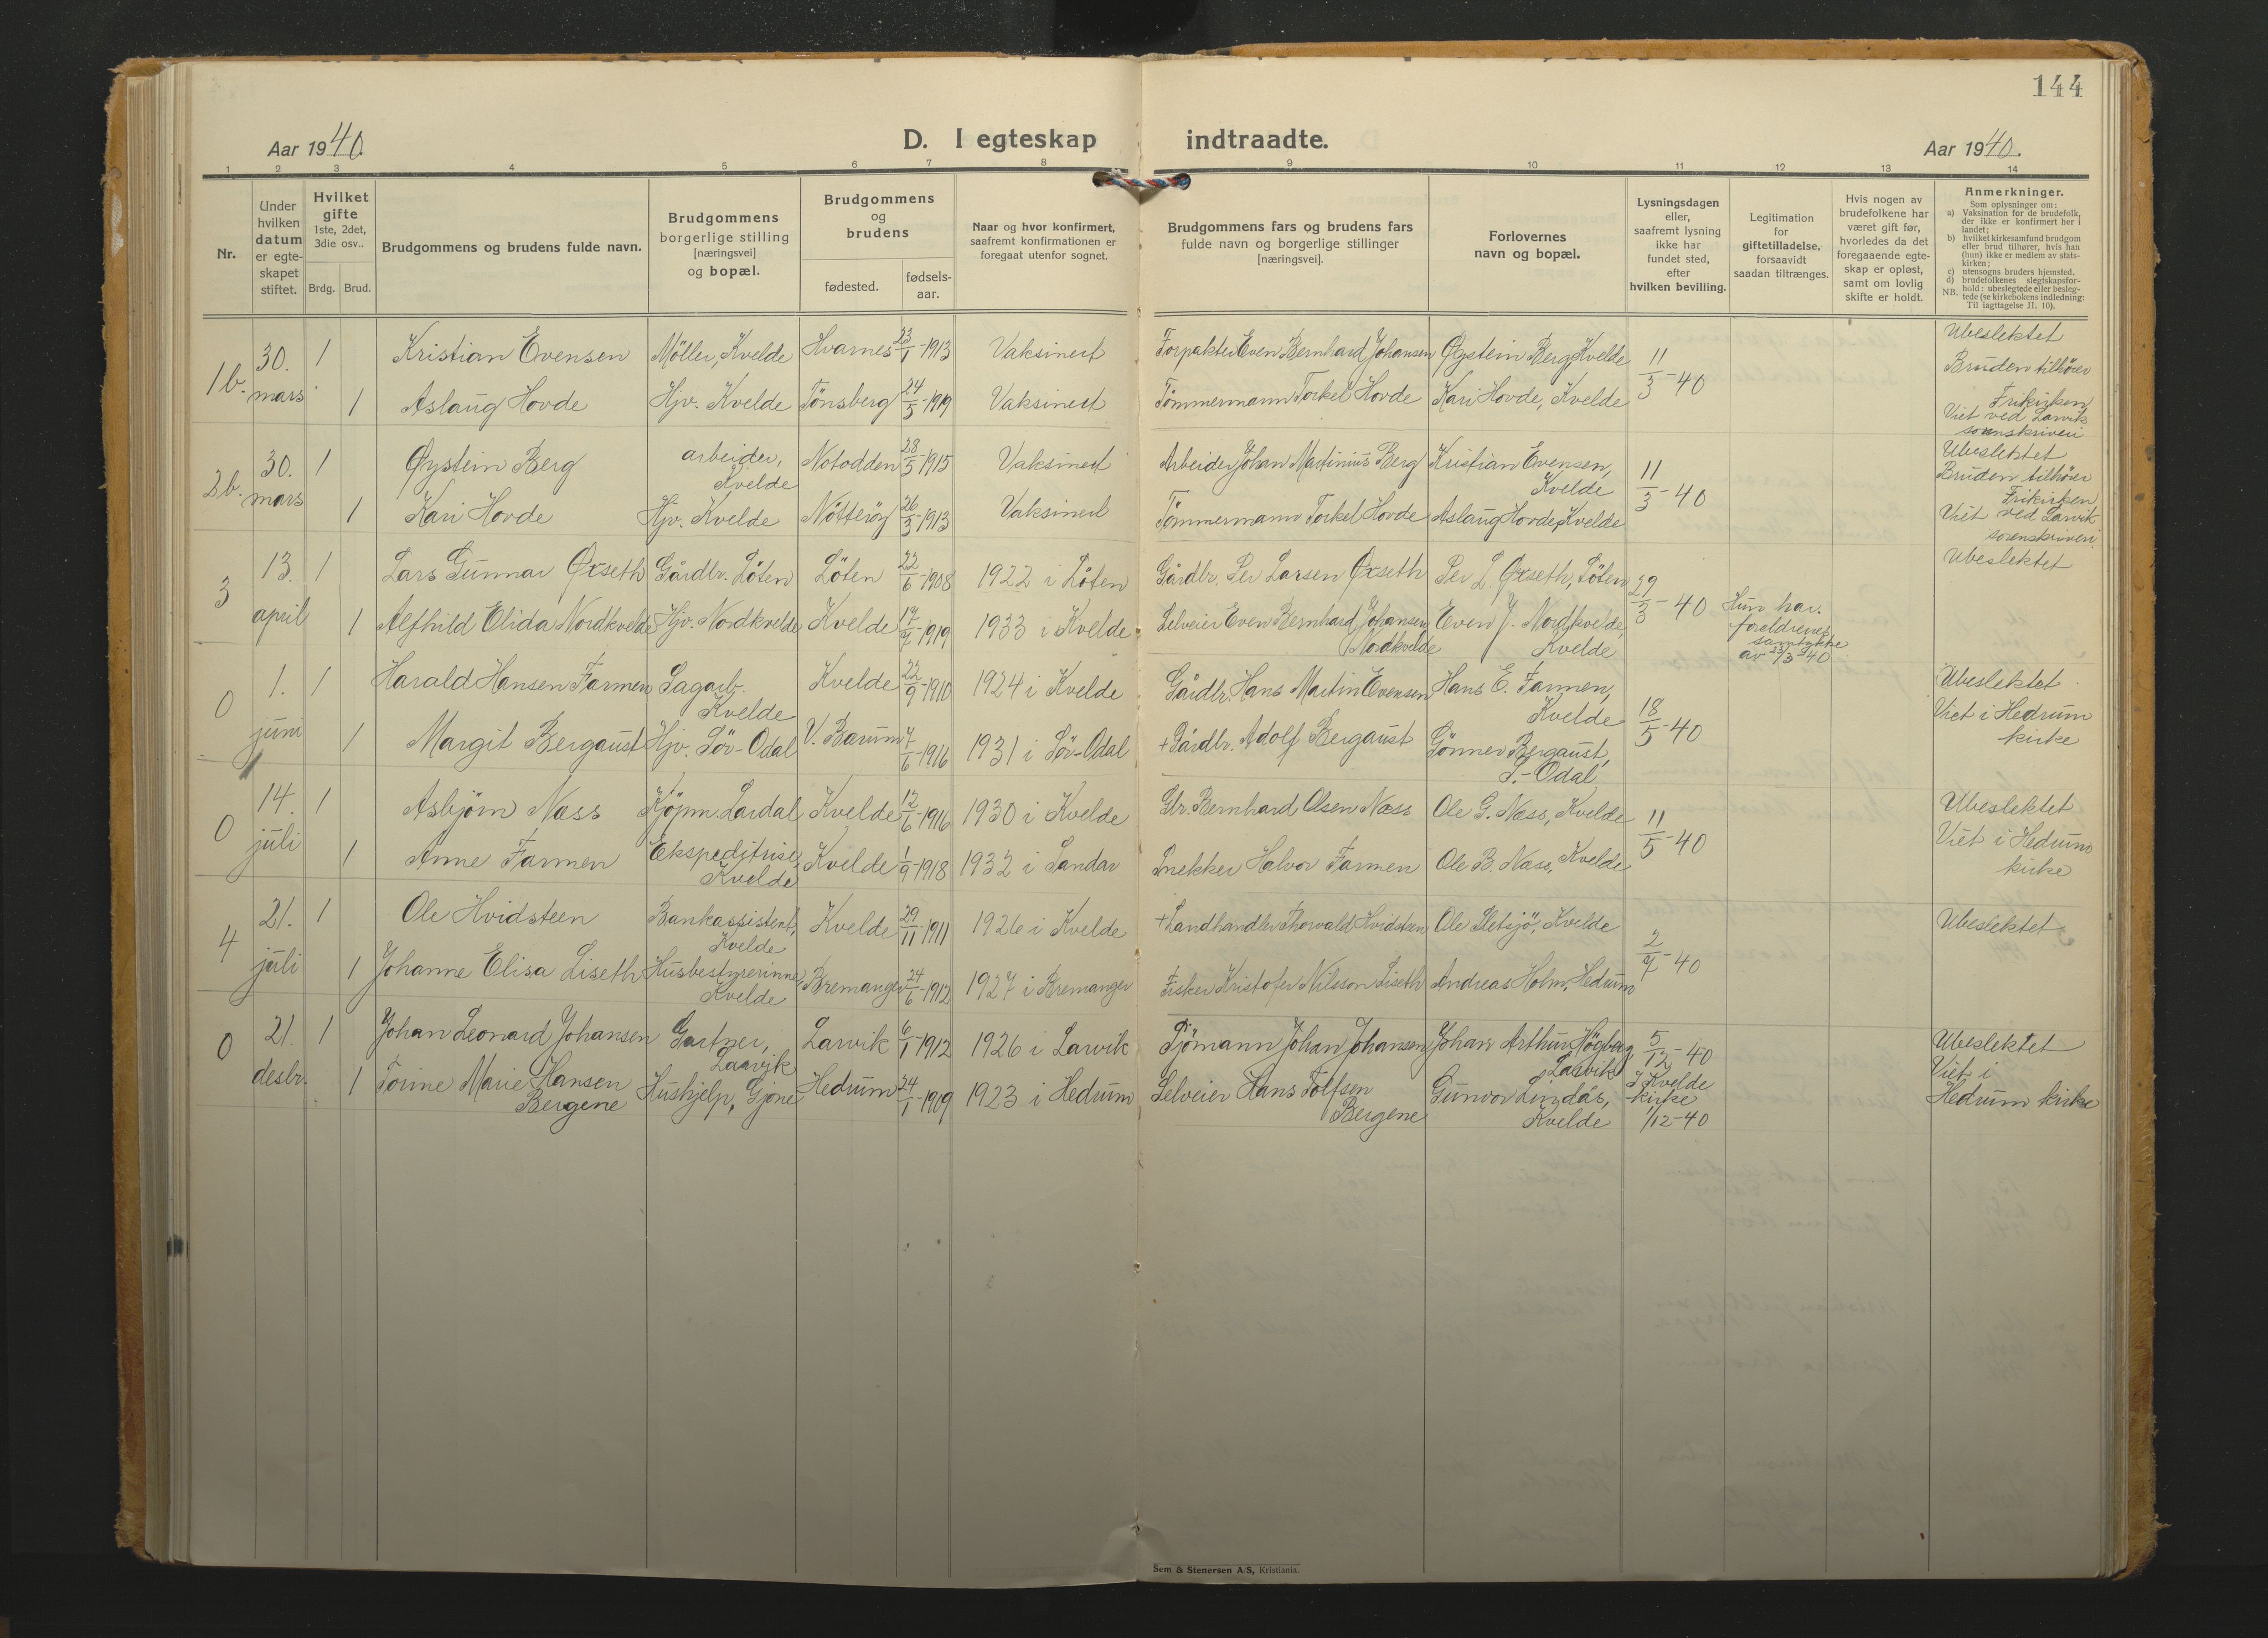 144
Aar 1940.
D. I egteskap indtraadte.
Aar 1940.
1 2 3 4 5 6 7 8 9 10 11 12 13 14
Nr.
Under hvilken datum er egte-skapet stiftet.
Hvilket gifte 1ste, 2det, 3die osv..
Brdg. Brud.
Brudgommens og brudens fulde navn.
Brudgommens borgerlige stilling [næringsvei] og bopæl.
Brudgommens og brudens
fødested.
fødsels-aar.
Naar og hvor konfirmert, saafremt konfirmationen er foregaat utenfor sognet.
Brudgommens fars og brudens fars fulde navn og borgerlige stillinger [næringsvei].
Forlovernes navn og bopæl.
Lysningsdagen eller, saafremt lysning ikke har fundet sted, efter hvilken bevilling.
Legitimation for giftetilladelse, forsaavidt saadan tiltrænges.
Hvis nogen av brudefolkene har været gift før, hvorledes da det foregaaende egte-skap er opløst, samt om lovlig skifte er holdt.
Anmerkninger.
Som oplysninger om:
a) Vaksination for de brudefolk, der ikke er konfirmert her i landet;
b) hvilket kirkesamfund brudgom eller brud tilhører, hvis han (hun) ikke er medlem av stats-kirken;
c) utensogns bruders hjemsted.
d) brudefolkenes slegtskapsfor-hold: ubeslegtede eller besleg-tede (se kirkebokens indledning: Til iagttagelse II. 10).
NB.
1b. 30. mars 1 Kristian Evensen Möller, Kvelde Hvarnes 23/1-1913 Vaksinert Forpakter Even Bernhard Johansen Øystein Berg, Kvelde 11/3-40 Ubeslektet
1 Aslaug Hovde Hjv. Kvelde Tönsberg 24/5-1919 Vaksinert Tömmermann Torkel Hovde Kari Hovde, Kvelde Bruden tilhører
Frikirken
Viet ved Larvik
sorenskriveri
2b. 30. mars 1 Øystein Berg arbeider, Kvelde Notodden 28/5-1915 Vaksinert Arbeider Johan Martinius Berg Kristian Evensen, Kvelde 11/3-40 Ubeslektet
1 Kari Hovde Hjv. Kvelde Nötteröy 26/3-1913 Vaksinert Tömmermann Torkel Hovde Aslaug Hovde, Kvelde Bruden tilhører
Frikirken
Viet ved Larvik
sorenskriveri
3 13. april 1 Lars Gunnar Øxseth Gårdbr. Löten Löten 22/6-1908 1922 i Löten Gårdbr. Per Larsen Øxseth Per L. Øxseth, Löten 29/3-40 Ubeslektet
1 Alfhild Elida Nordkvelde Hjv. Nordkvelde Kvelde 1919 1933 i Kvelde Selveier Even Bernhard Johansen Nordkvelde Even J. Nordkvelde, Kvelde
Hun har
foreldrenes
samtykke
av 23/3-40
0 1. juni 1 Harald Hansen Farmen Sagarb. Kvelde Kvelde 22/9-1910 1924 i Kvelde Gårdbr. Hans Martin Evensen Hans E. Farmen, Kvelde 18/5-40 Ubeslektet
1 Margit Bergaust Hjv. Sör-Odal V. Bærum 7/6-1916 1931 i Sør-Odal +Gårdbr. Adolf Bergaust Gönner Bergaust, S.-Odal Viet i Hedrum
kirke
0 14. juli 1 Asbjörn Næss Kjöpm. Lardal Kvelde 12/6-1916 1930 i Kvelde Gbr. Bernhard Olsen Næss Ole G. Næss, Kvelde 11/5-40 Ubeslektet
1 Anne Farmen Ekspeditrise, Kvelde Kvelde 1/9-1918 1932 i Sandar Snekker Halvor Farmen Ole B. Næss, Kvelde Viet i Hedrum
kirke
4 21. juli 1 Ole Hvidsteen Bankassistent, Kvelde Kvelde 29/11-1911 1926 i Kvelde +Landhandler Thorvald Hvidsteen Ole Sletsjö, Kvelde 2/7-40 Ubeslektet
1 Johanne Elisa Liseth Husbestyrerinne, Kvelde Bremanger 24/6-1912 1927 i Bremanger Fisker Kristofer Nilsson Liseth Andreas Holm, Hedrum
0 21. desbr. 1 Johan Leonard Johansen Gartner, Larvik Larvik 6/1-1912 1926 i Larvik Sjömann Johan Johansen Johan Arthur Högberg, Larvik 5/12-40 Ubeslektet
1 Torine Marie Hansen Bergene Hushjelp, Gjone Hedrum 24/1-1909 1923 i Hedrum Selveier Hans Tolfsen Bergene Gunvor Lindås, Kvelde I Kvelde kirke 1/12-40 Viet i
Hedrum kirke
Sem & Stenersen A/S, Kristiania.